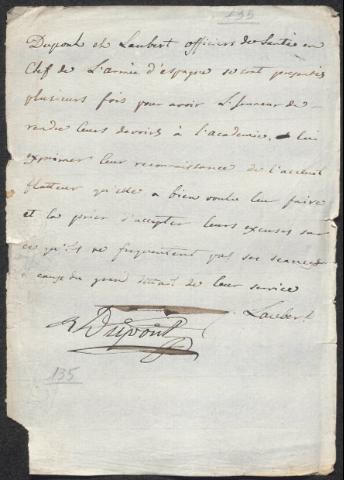 135
Dupont et Laubert officiers de Santé en
Chef de L'armée d'espagne se sont presentés
plusieurs fois pour avoir L'honneur de
rendre leurs devoirs à l'academie, lui
exprimer leur reconnaissance de l'acceuil
flatteur qu'elle a bien voulu leur faire
et la prier d'accepter leurs excuses sur
ce qu'ils ne frequentent pas ses seances
à cause du grand détail de leur service
Laubert
Dupont
135